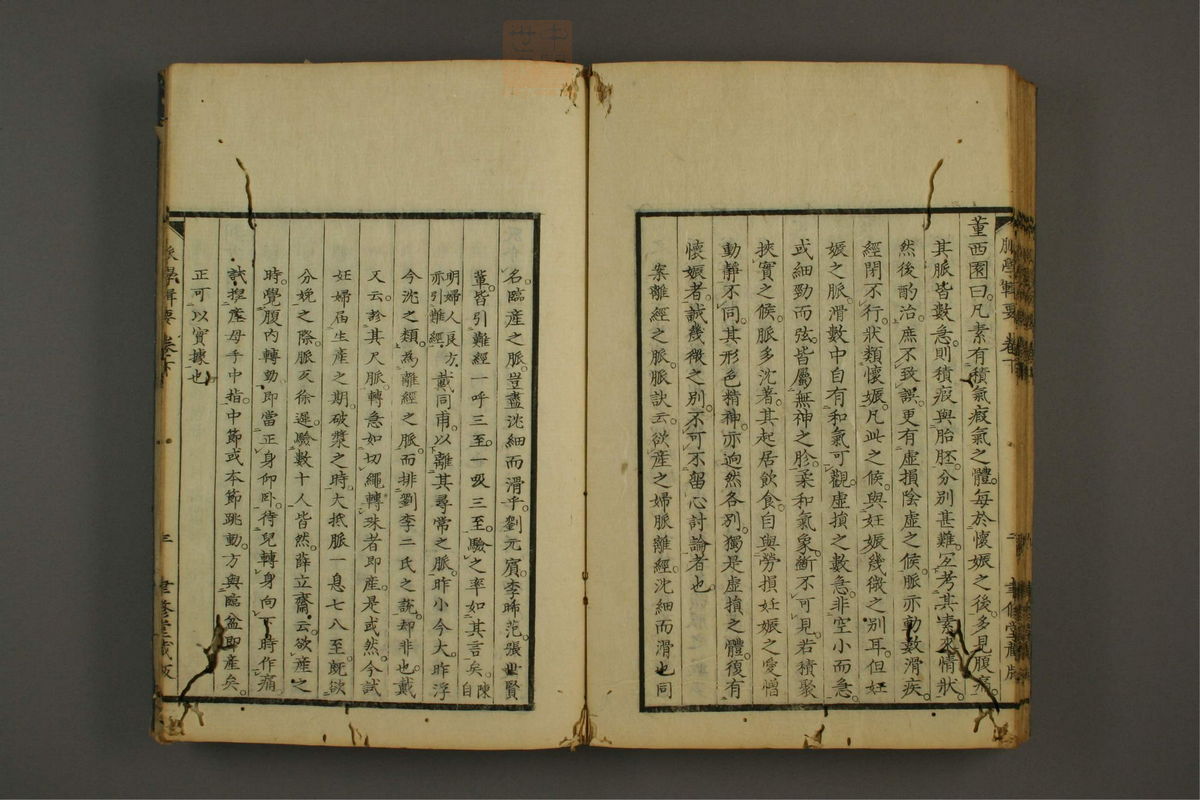 董西園曰凡素有積氣瘕氣之體每於懷娠之後多見腹痛
其脈皆數急則積瘕與胎胚分別甚難宜考其素來情狀
然後酌治庶不致誤更有虛損陰虛之候脈亦動數滑疾
經閉不行狀類懷娠凡此之候與妊娠幾微之別耳但妊
娠之脈滑數中自有和氣可觀虛損之數急非空小而急
或細勁而弦皆屬無神之診柔和氣象斷不可見若積聚
挾實之候脈多沈著其起居飲食自與勞損妊娠之愛憎
動靜不同其形色精神亦逈然各別獨是虛損之體復有
懷娠者誠幾微之別不可不留心討論者也
案離經之脈脈訣云欲產之婦脈離經沈細而滑也同
脈學輯要 卷下 二 聿修堂藏版
名臨產之脈豈盡沈細而滑乎劉元賓李晞范張世賢
輩皆引難經一呼三至一吸三至驗之率如其言矣陳自
明婦人良方亦引難經戴同甫以離其尋常之脈昨小今大昨浮
今沈之類為離經之脈而排劉李二氏之說却非也戴
又云診其尺脈轉急如切繩轉珠者即產是或然今試
妊婦屆生產之期破漿之時大抵脈一息七八至既欲
分娩之際脈反徐遲驗數十人皆然薛立齋云欲產之
時覺腹內轉動即當正身仰臥待兒轉身向下時作痛
試捏產母手中指中節或本節跳動方與臨盆即產矣
正可以實據也
脈學輯要 卷下 三 聿修堂藏版